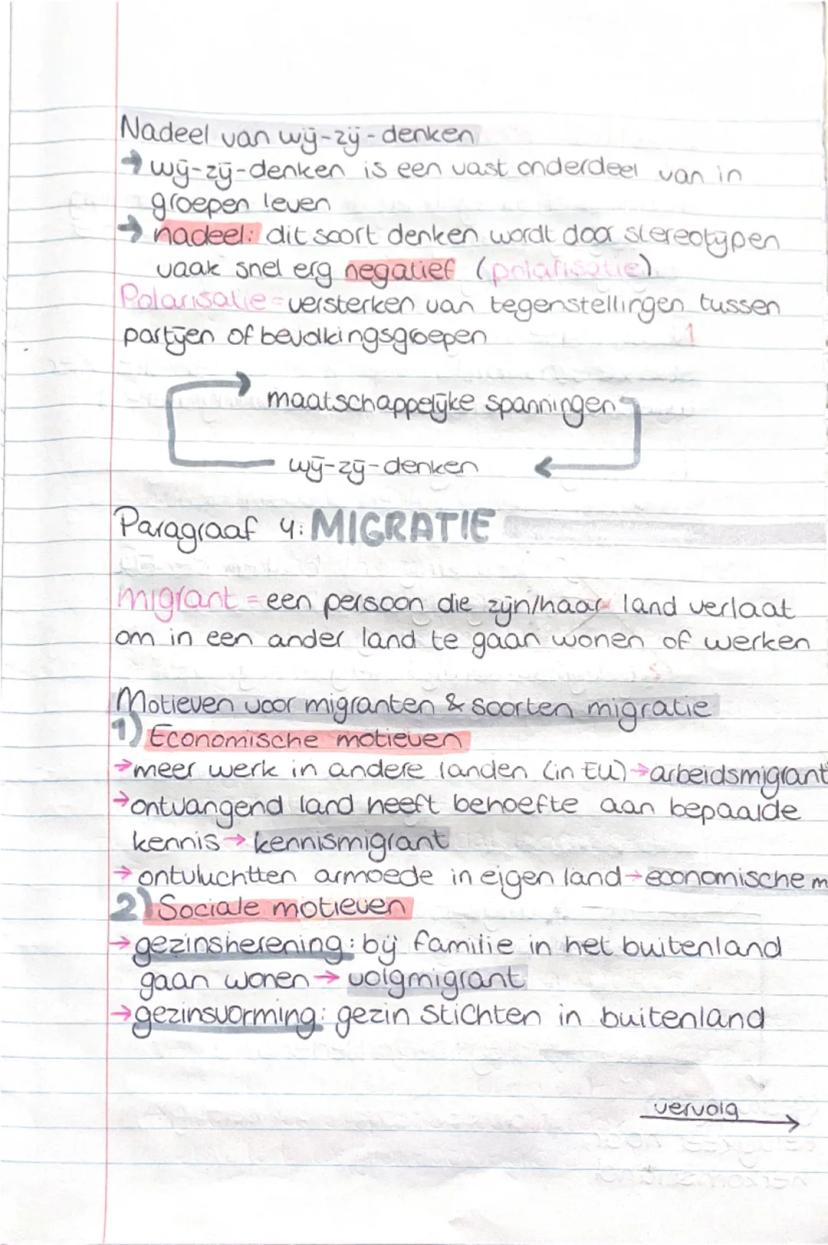 Nadeel van wij-zij-denken
→ wij-zij-denken is een vast onderdeel van in
groepen leven
→ nadeel: dit soort denken wordt door stereotypen
vaak snel erg negatief (polarisatie)
Polarisatie = versterken van tegenstellingen tussen
partijen of bevolkingsgroepen
maatschappelijke spanningen
wij-zij-denken
Paragraaf 4: MIGRATIE
migrant = een persoon die zijn/haar land verlaat
om in een ander land te gaan wonen of werken
Motieven voor migranten & soorten migratie
1) Economische motieven
→ meer werk in andere landen (in EU) → arbeidsmigrant
→ ontvangend land heeft behoefte aan bepaalde
kennis → kennismigrant
→ ontvluchtten armoede in eigen land → economische m
2) Sociale motieven
→ gezinsherening: bij familie in het buitenland
gaan wonen → volgmigrant
→ gezinsvorming: gezin stichten in buitenland
vervolg →